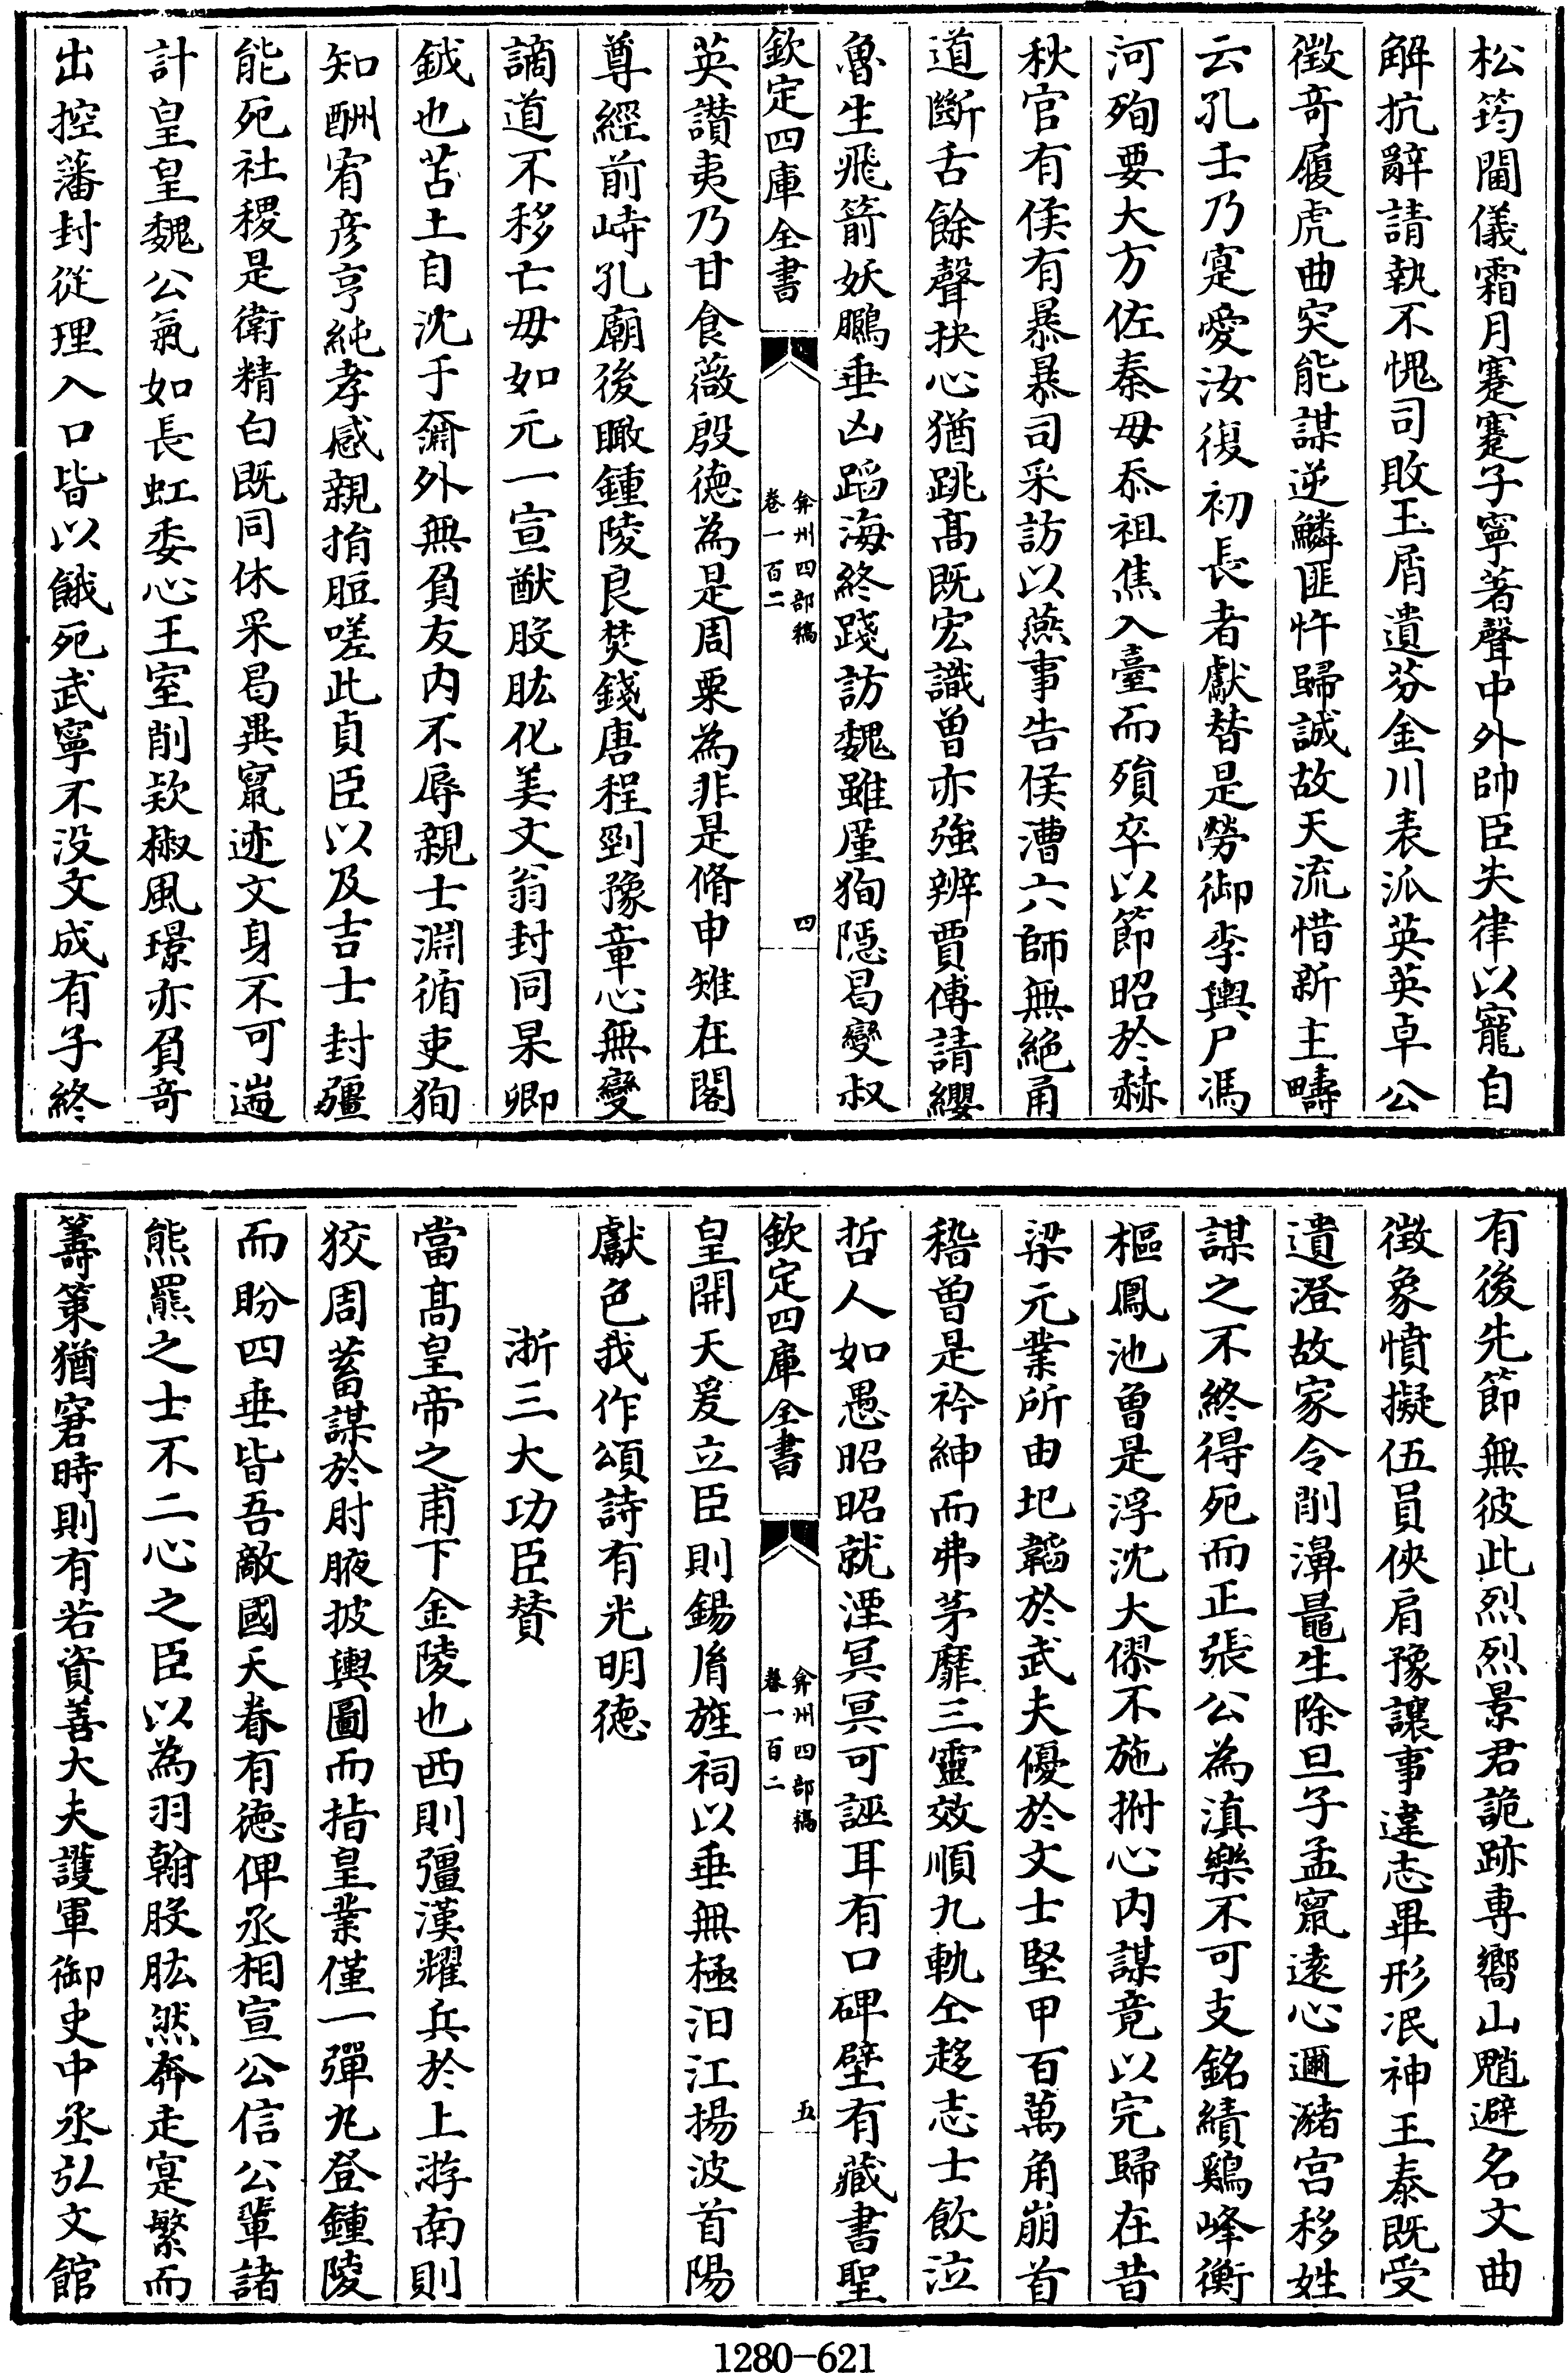 松筠閫儀霜月蹇蹇子寧著聲中外帥臣失律以寵自
解抗辭請執不愧司敗玉屑遺芬金川表派英英卓公
徵奇履虎曲突能謀逆鱗匪忤歸誠故天流惜新主疇
云孔壬乃寔愛汝復初長者獻替是勞御李輿尸馮
河殉要大方佐秦毋忝祖焦入臺而殞卒以節昭於赫
秋官有侯有暴暴司采訪以燕事告侯漕六師無絕甬
道斷舌餘聲抉心猶跳髙既宏識曾亦強辨賈傅請纓
魯生飛箭妖鵩垂凶蹈海終踐訪魏雖厪狥隱曷變叔
欽定四庫全書
弇州四部稿
卷一百二
四
英讚夷乃甘食薇殷德為是周粟為非是脩申雉在閣
尊經前峙孔廟後瞰鍾陵良焚錢唐程剄豫章心無變
謫道不移亡毋如元一宣猷股肱化美文翁封同杲卿
鉞也苫土自沈于甯外無負友内不辱親士淵循吏狥
知酬宥彥亨純孝感親揹脰嗟此貞臣以及吉士封疆
能死社稷是衛精白既同休采曷異竄迹文身不可遄
計皇皇魏公氣如長虹委心王室削欵椒風璟亦負奇
出控藩封從理入口皆以餓死武寧不没文成有子終
有後先節無彼此烈烈景君詭跡専嚮山魈避名文曲
徵象憤擬伍員俠肩豫讓事違志畢形泯神王泰既受
遺澄故家令削濞鼂生除旦子孟竄逺心邇瀦宫移姓
謀之不終得死而正張公為滇樂不可支銘績鷄峰衡
樞鳳池曾是浮沈大僇不施拊心内謀竟以完歸在昔
梁元業所由圮韜於武夫優於文士堅甲百萬角崩首
稽曾是衿紳而弗茅靡三靈效順九軌仝趍志士飲泣
哲人如愚昭昭就湮冥冥可誣耳有口碑壁有藏書聖
欽定四庫全書
弇州四部稿
卷一百二
五
皇開天爰立臣則錫胤旌祠以垂無極汨江揚波首陽
獻色我作頌詩有光明徳
浙三大功臣賛
當髙皇帝之甫下金陵也西則彊漢耀兵於上游南則
狡周蓄謀於肘腋披輿圖而指皇業僅一彈丸登鍾陵
而盼四垂皆吾敵國天眷有徳俾丞相宣公信公輩諸
熊羆之士不二心之臣以為羽翰股肱然奔走寔繁而
籌策猶窘時則有若資善大夫護軍御史中丞弘文館
1280-621